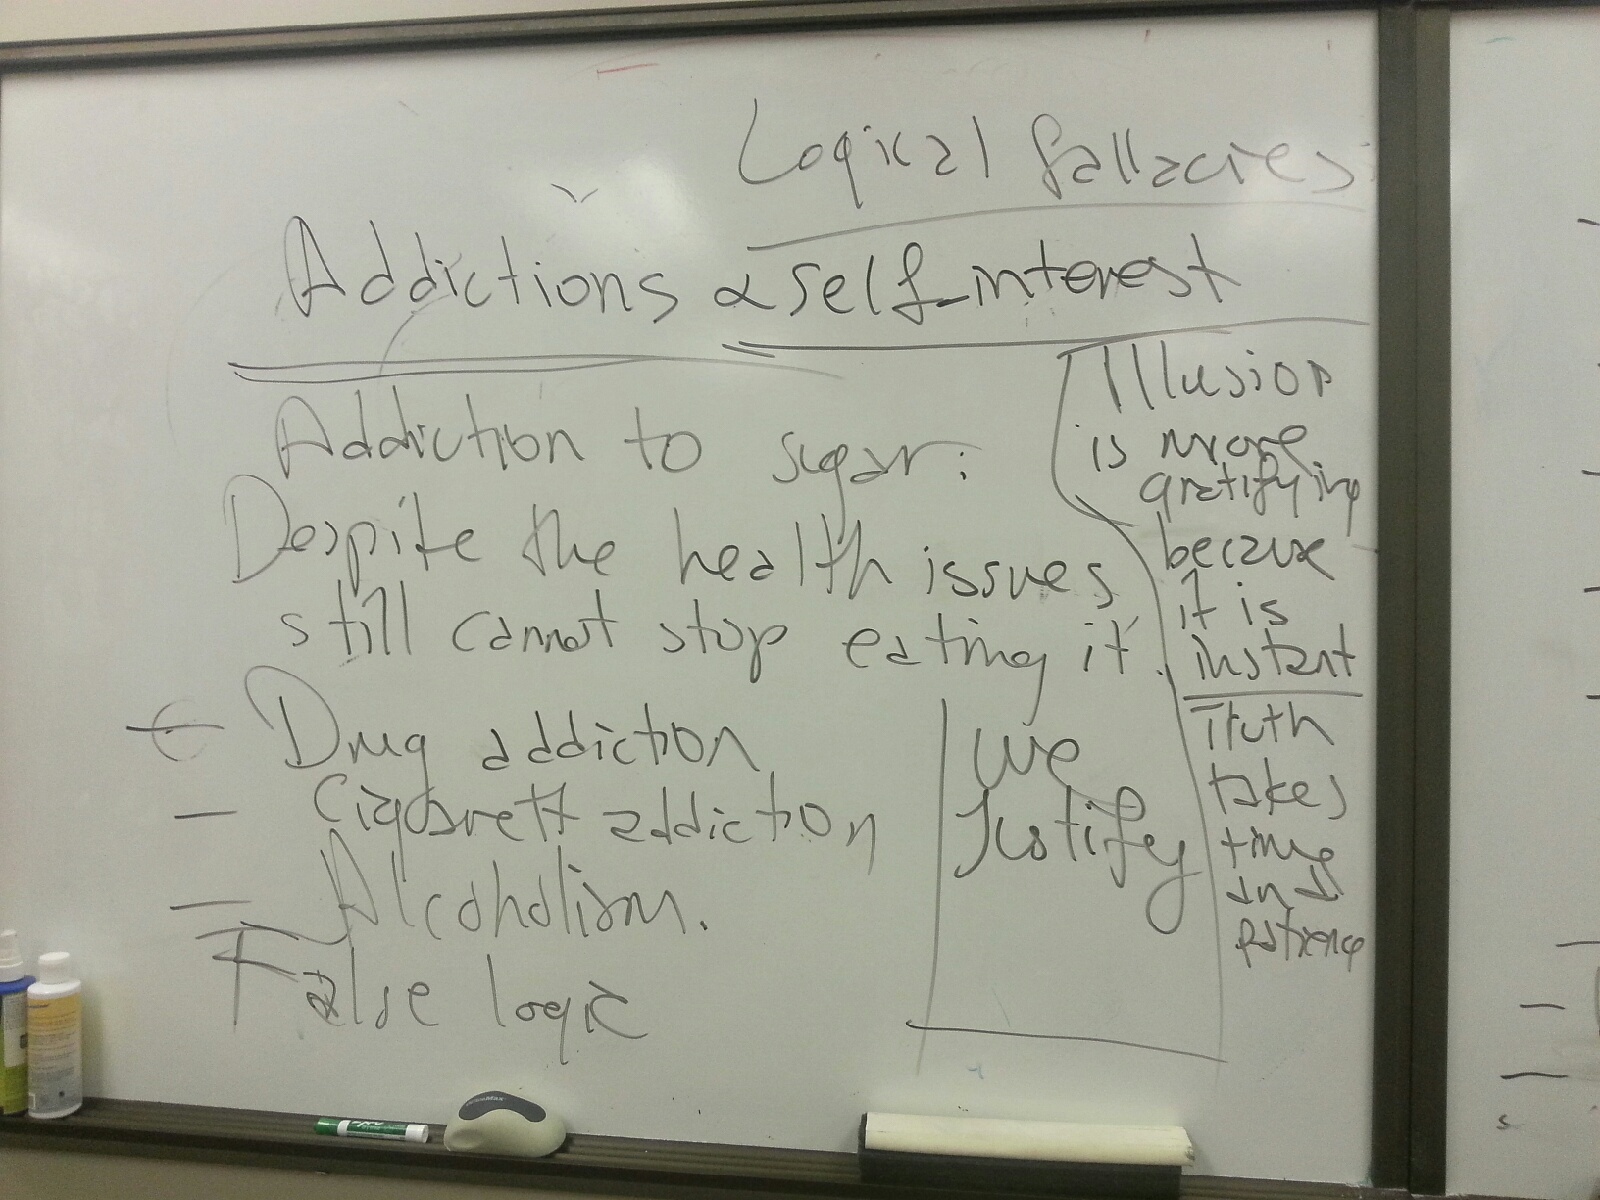 Logical fallacies
Addictions & self-interest
Addiction to sugar:
Despite the health issues
still cannot stop eating it.
Drug addiction
— Cigarett addiction
— Alcoholism.
False logic
we
Justify
Illusion
is more
gratifying
because
it is
instant
Truth
takes
time
and
patience